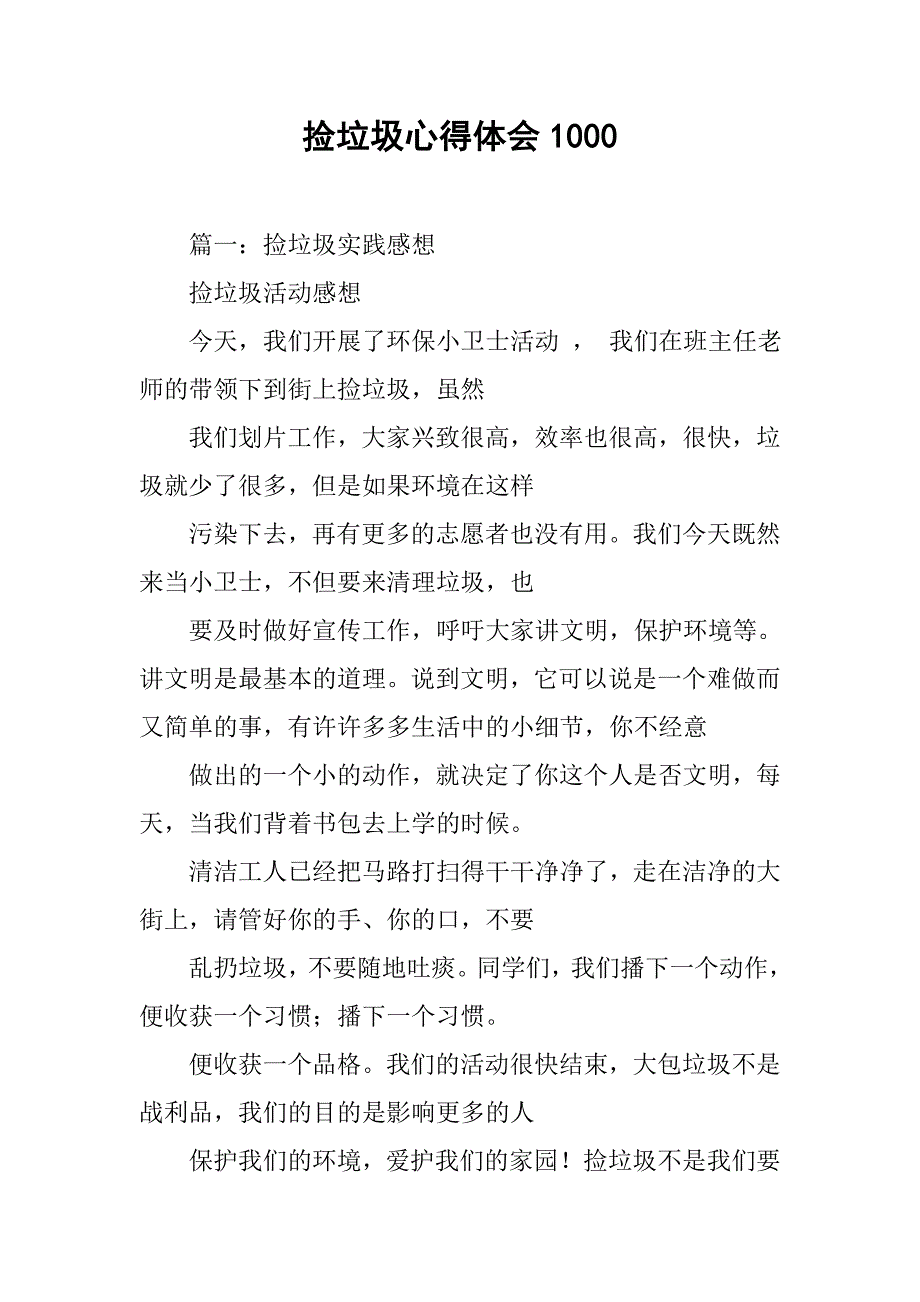 捡垃圾心得体会1000
篇一：捡垃圾实践感想
捡垃圾活动感想
今天，我们开展了环保小卫士活动 ， 我们在班主任老
师的带领下到街上捡垃圾，虽然
我们划片工作，大家兴致很高，效率也很高，很快，垃
圾就少了很多，但是如果环境在这样
污染下去，再有更多的志愿者也没有用。我们今天既然
来当小卫士，不但要来清理垃圾，也
要及时做好宣传工作，呼吁大家讲文明，保护环境等。
讲文明是最基本的道理。说到文明，它可以说是一个难做而
又简单的事，有许许多多生活中的小细节，你不经意
做出的一个小的动作，就决定了你这个人是否文明，每
天，当我们背着书包去上学的时候。
清洁工人已经把马路打扫得干干净净了，走在洁净的大
街上，请管好你的手、你的口，不要
乱扔垃圾，不要随地吐痰。同学们，我们播下一个动作，
便收获一个习惯；播下一个习惯。
便收获一个品格。我们的活动很快结束，大包垃圾不是
战利品，我们的目的是影响更多的人
保护我们的环境，爱护我们的家园！捡垃圾不是我们要